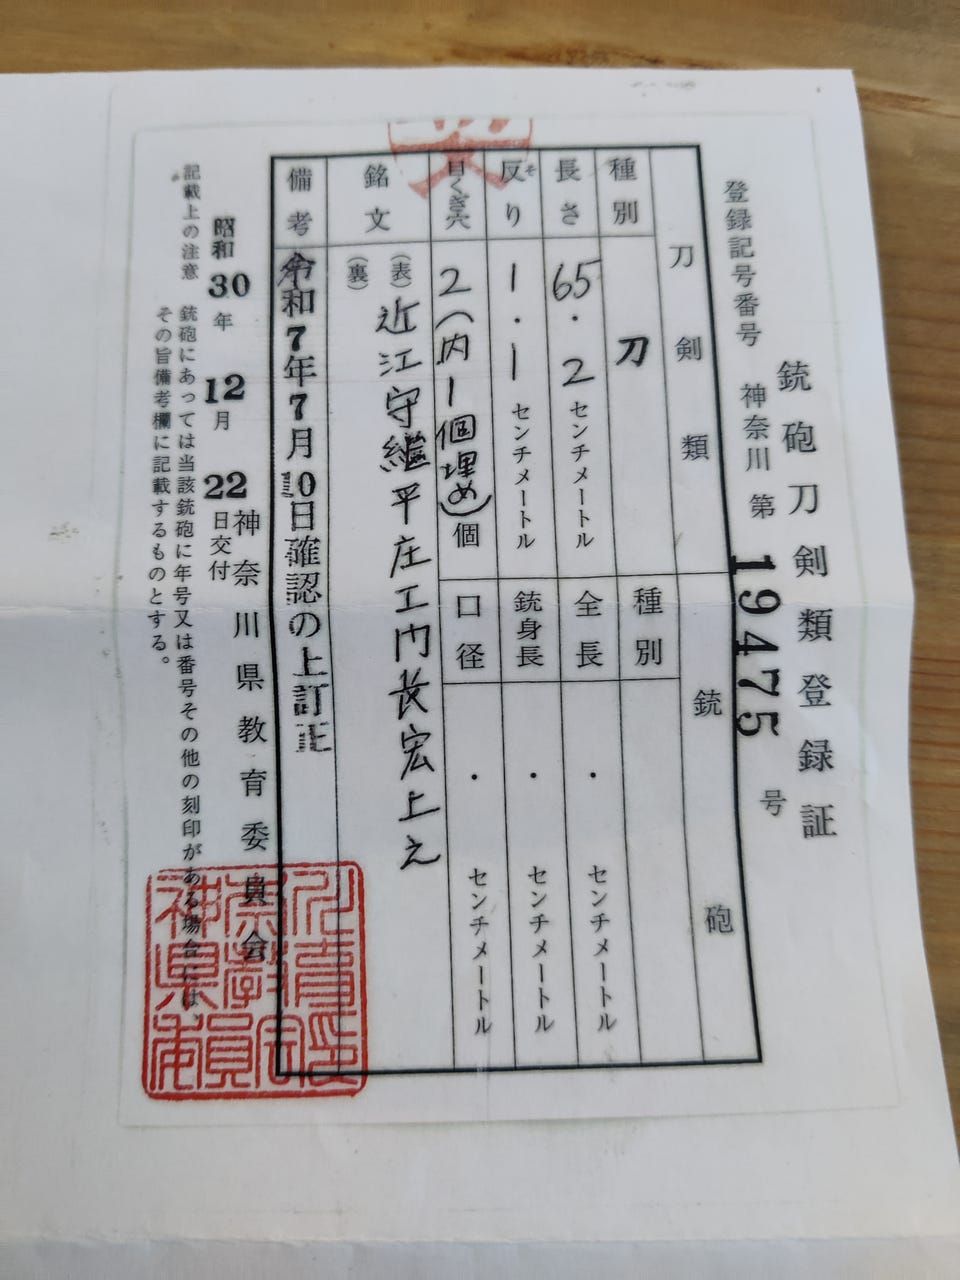 銃砲刀剣類登録証
登録記号番号 神奈川 第 19475 号
刀剣類
銃砲
種別 刀
種別
長さ 65.2 センチメートル
全長 ・ センチメートル
反り 1.1 センチメートル
そ
銃身長 ・ センチメートル
目くぎ穴 2(内1個埋め)個
口径 ・ センチメートル
銘文
(表) 近江守継平庄工門長宏上之
(裏)
備考 令和7年7月10日確認の上訂正
神奈川県教育委員会
昭和30年12月22日交付
記載上の注意 銃砲にあっては当該銃砲に年号又は番号その他の刻印がある場合には、
その旨備考欄に記載するものとする。